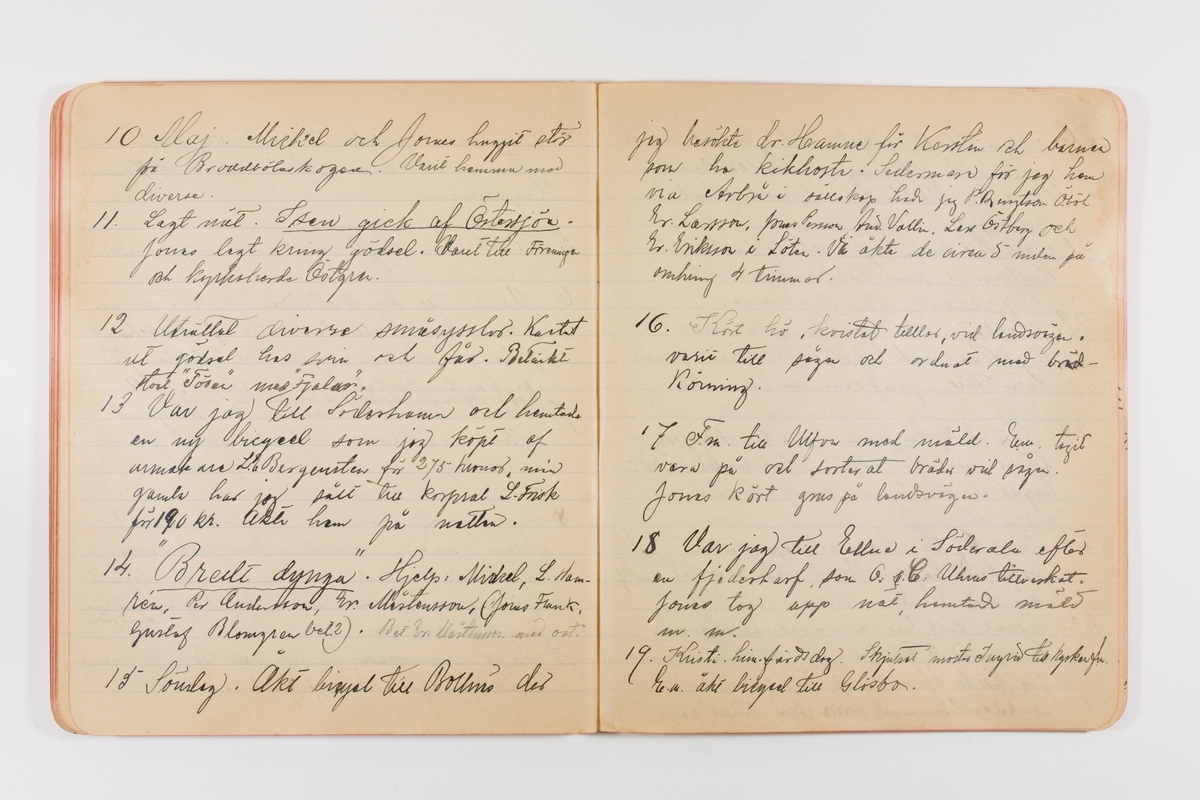 10 Maj. Mickel och Jonas huggit stör
på Brovedbölaskogen. Varit hemma med
diverse.
11. Lagt nät. Isen gick af Östersjön.
Jonas lagt kring gödsel. Varit till Föreningen
och kyrkoherde Östgren.
12 Uträttat diverse småsysslor. Kastat
ut gödsel hos svin och får. Betäckt
stoet "Tösa" med "Fjalar".
13 Var jag till Söderhamn och hemtade
en ny bicycel som jog köpt af
urmakare L. Bergensten för 275 kronor, min
gamla har jog sålt till korpral L. Frisk
för 190 kr. Åkte hem på natten.
14. "Bredt dynga". Hjelp: Mickel, L. Ham-
rén, Per Andersson, Er. Mårtensson, (Jonas Frank,
Gustaf Blomgren bet. 2). Bet Er. Mårtensson med ost.
15 Söndag. Åkt bicycel till Bollnäs der
jeg besökte dr. Hamne för Kerstin och barnen
som ha kikhosta. Sedermera för jag hem
via Arbrå i sällskap hade jeg P. Bengtson
Er. Larsson, Jonas Persson, And. Vallin, Lars Östberg och
Er. Eriksson i Loten. Vi åkte de cirea 5 milen på
omkring 4 timmar.
16. Kört hö, kvistat tellar, vid landsvägen.
varit till sågen och ordnat med bräd-
körning.
17 Fm. till Ulfva med mäld. Em. tagit
vara på och sorterat bräder vid sågen.
Jonas kört grus på landsvägen.
18 Var jag till Ellne i Söderala efter
en fjederharf, som O. & C. tillverkat.
Jonas tog upp nät, hemtade mäld
m. m.
19. Kristi him.färdsdag. Skjutsat moster Ingrid till kyrkan fm.
E.m. åkt bicycel till Glösbo.